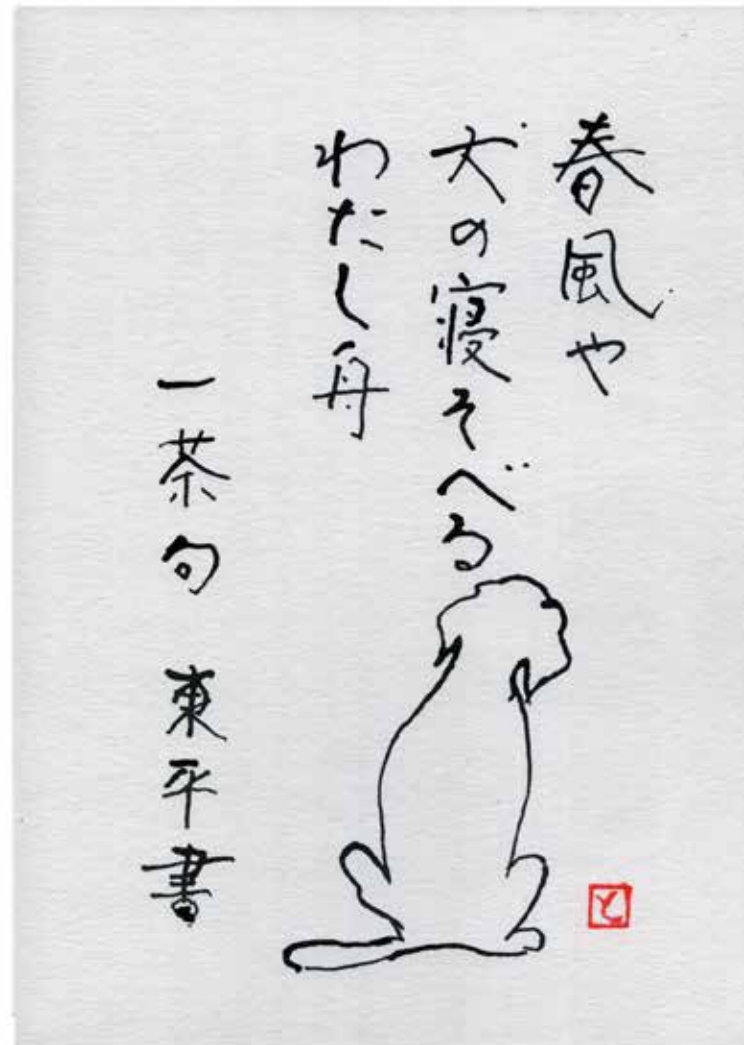 春風や
犬の寝そべる
わたし舟
一茶句 東平書
と